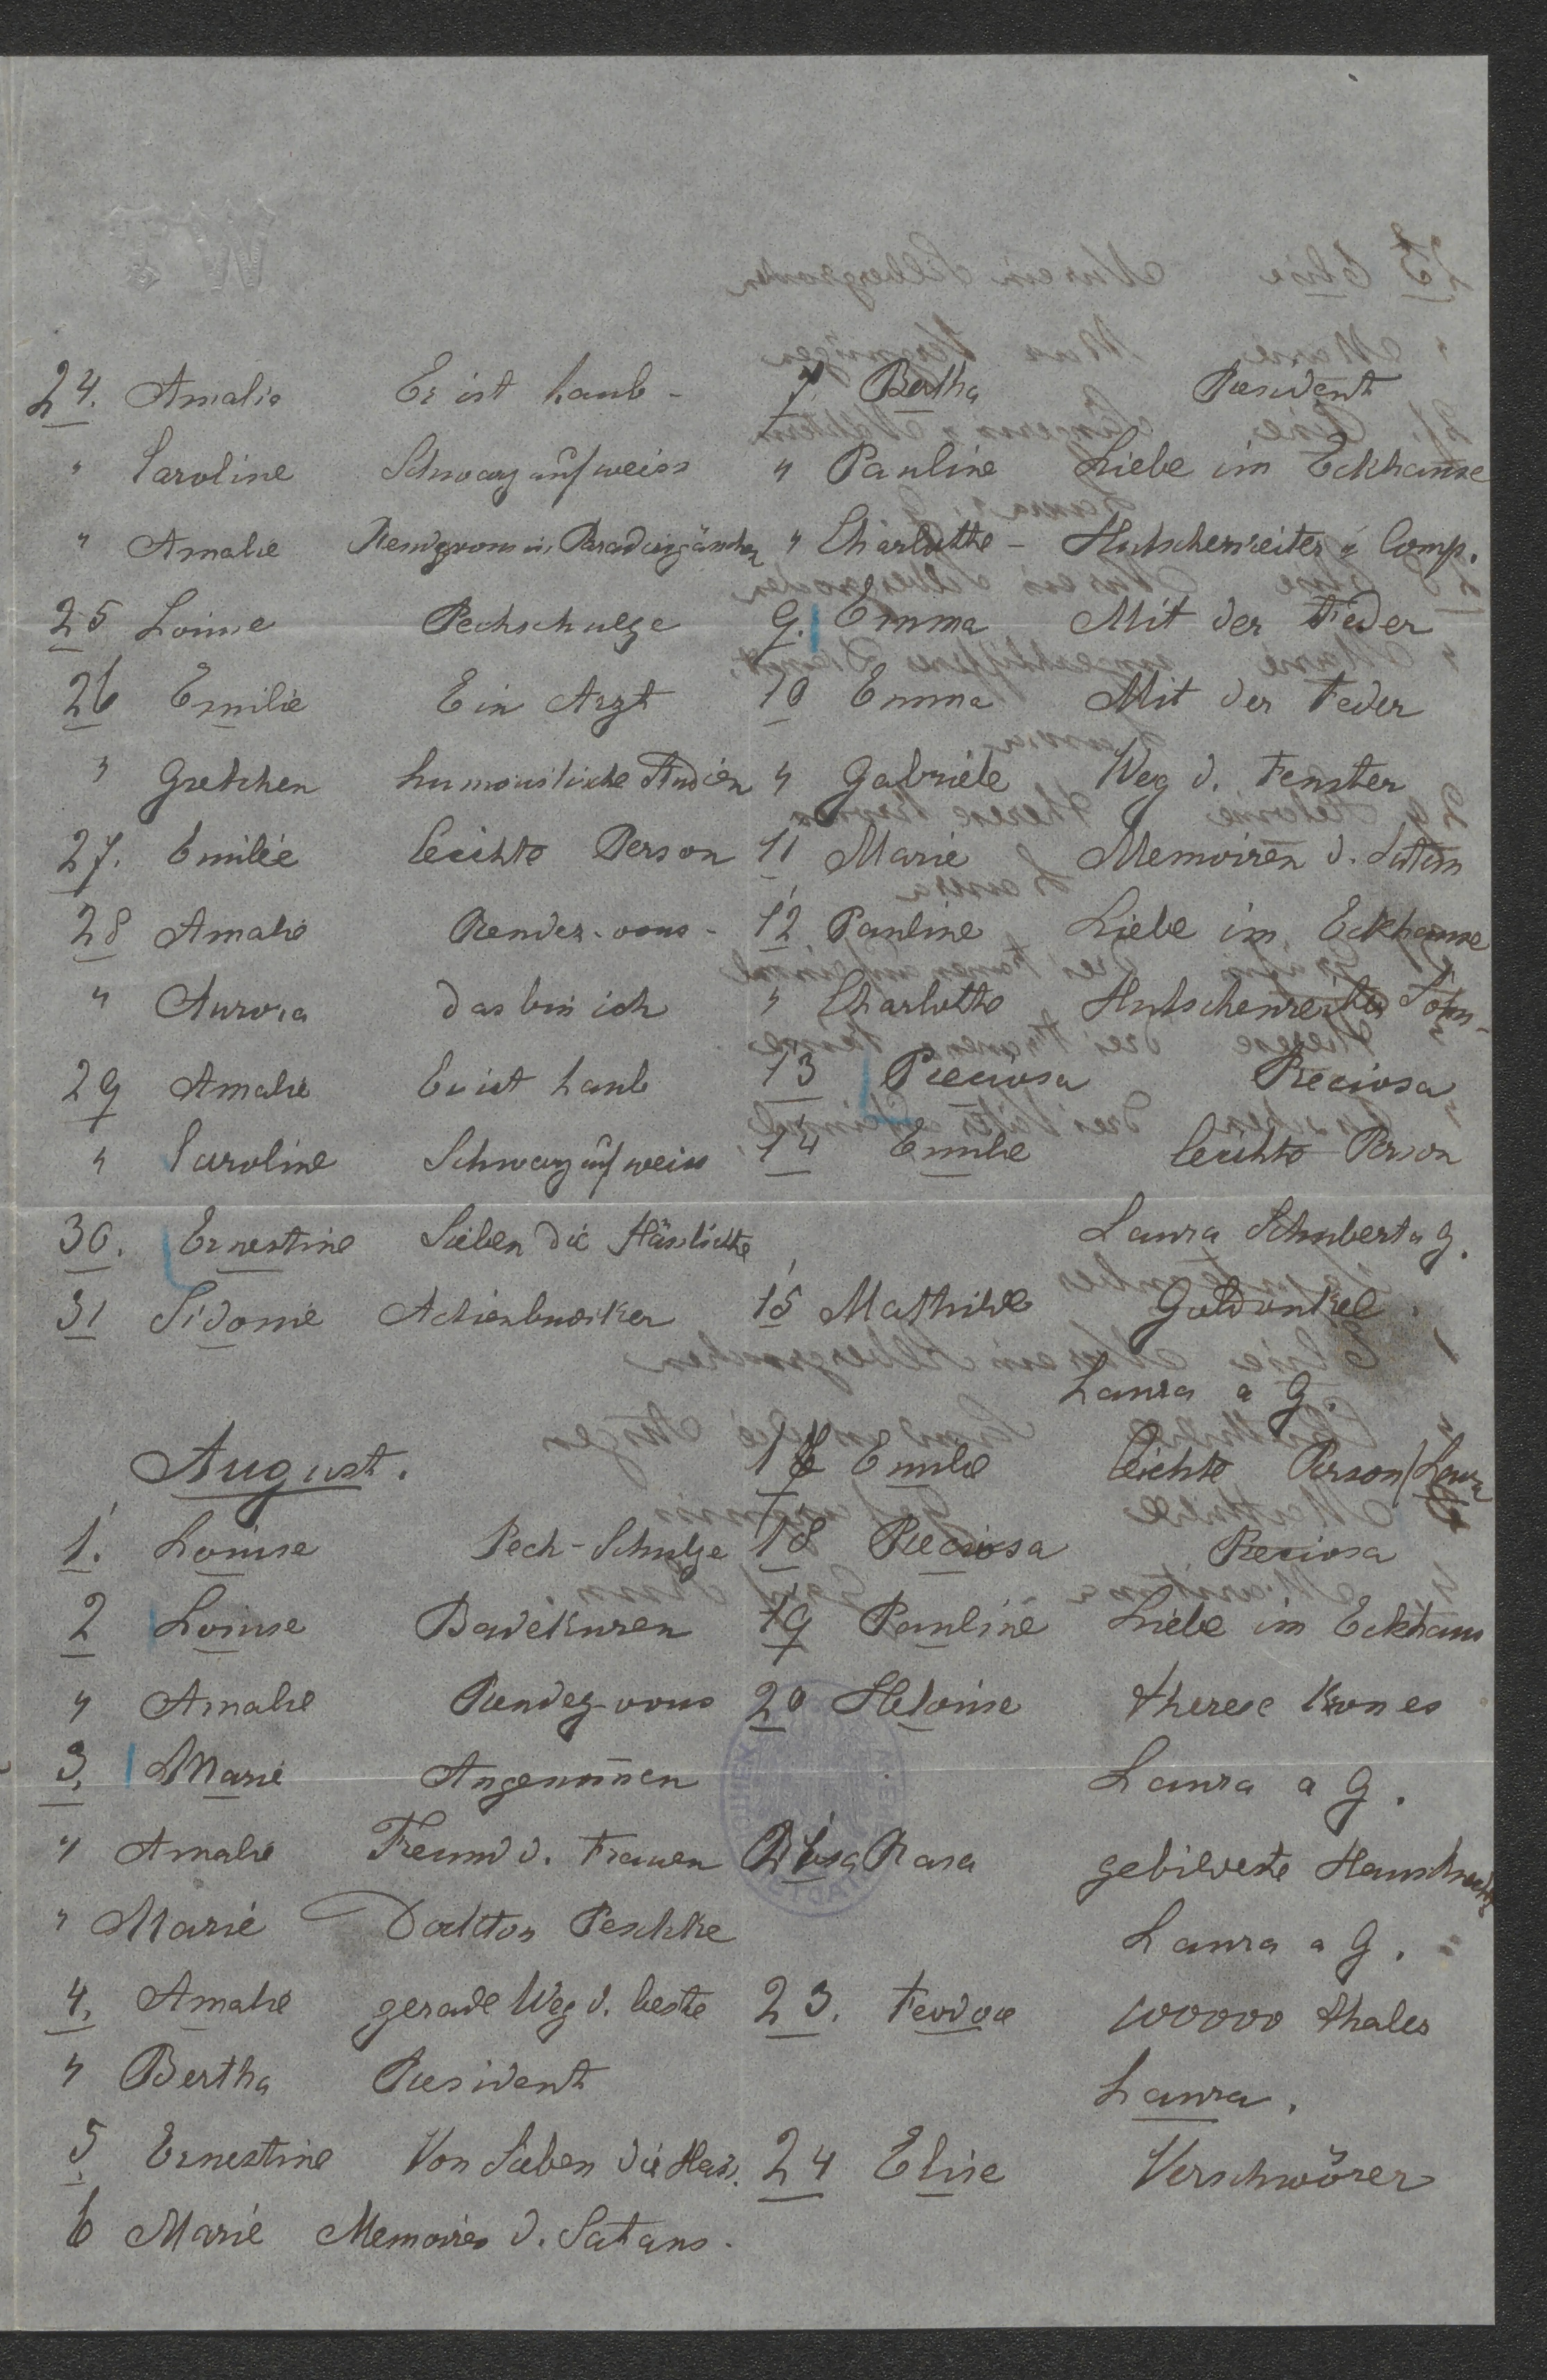 24. Amalie Er ist taub -
" Caroline Schwarz auf weiss
" Amalie Rendezvous im Paradiesgärtchen
25 Louise Pechschulze
26 Emilie Ein Arzt
" Gretchen humoristische Studien
27. Emilie leichte Person
28 Amalie Rendez-vous -
" Aurora das bin ich
29 Amalie Er ist taub
" Caroline Schwarz auf weiss
30. Ernestine Sieben die Hässlichste
31 Sidonie Actienbudiker
August.
1. Louise Pech-Schulze
2 Louise Badekuren
" Amalie Rendez-vous
3. Marie Angenom̄en
" Amalie Freund d. Frauen
" Marie Docktor Peschke
4. Amalie gerade Weg d. beste
" Bertha Präsident
5 Ernestine Von Sieben die Häs.
6 Marie Memoiren d. Satans -
7. Bertha Präsident
" Pauline Liebe im Eckhause
" Charlotte - Hutschenreiter & Comp.
9. Emma Mit der Feder
10 Emma Mit der Feder
" Gabriele Weg d. Fenster
11 Marie Memoiren d. Satans
12 Pauline Liebe im Eckhause
" Charlotte Hutschenreiter
13 Preciosa Preciosa
14 Emilie leichte Person
Laura Schubert a G.
15 Mathilde Goldonkel
Laura a G.
17 Emilie leichte Person / Laura
18 Preciosa Preciosa
19 Pauline Liebe im Eckhaus
20 Heloise Therese Krones
Laura a G.
21 Rosa gebildete Hausknecht
Laura a G.
23. Feodore 100000 Thaler
Laura.
24 Elise Verschwörer